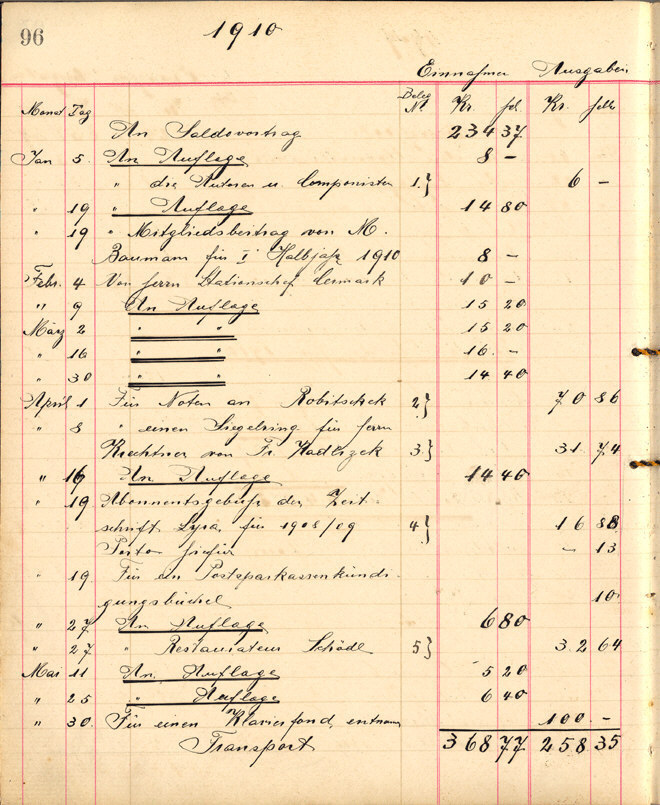 96 1910
Einnahmen Ausgaben
Monat Tag Beleg Nr. Kr. fel Kr. fellr
An Saldovortrag 234 37
Jan 5. An Auflage 8 –
" die Autoren u. Componisten 1.} 6 –
" 19 " Auflage 14 80
" 19 " Mitgliedsbeitrag von M.
Baumann für I Halbjahr 1910 8 –
Febr. 4 Von Herrn Stationschef Cermark 10 –
" 9 An Auflage 15 20
März 2 " " 15 20
" 16 " " 16 –
" 30 " " 14 40
April 1 Für Noten an Robitschek 2} 70 86
" 8 " einen Siegelring für Herrn
Krechtner von Fr. Kadlezek 3.} 31 74
" 16 An Auflage 14 40
" 19 Abonnentsgebühr der Zeit-
schrift Lyra für 1908/09 4} 16 88
Porto hiefür – 13
" 19 Für ein Postsparkassenkündi-
gungsbüchel 10
" 27 An Auflage 6 80
" 27 " Restaurateur Schödl 5} 32 64
Mai 11 An Auflage 5 20
" 25 " Auflage 6 40
" 30. Für einen Klavierfond entnom 100 –
Transport 368 77 258 35